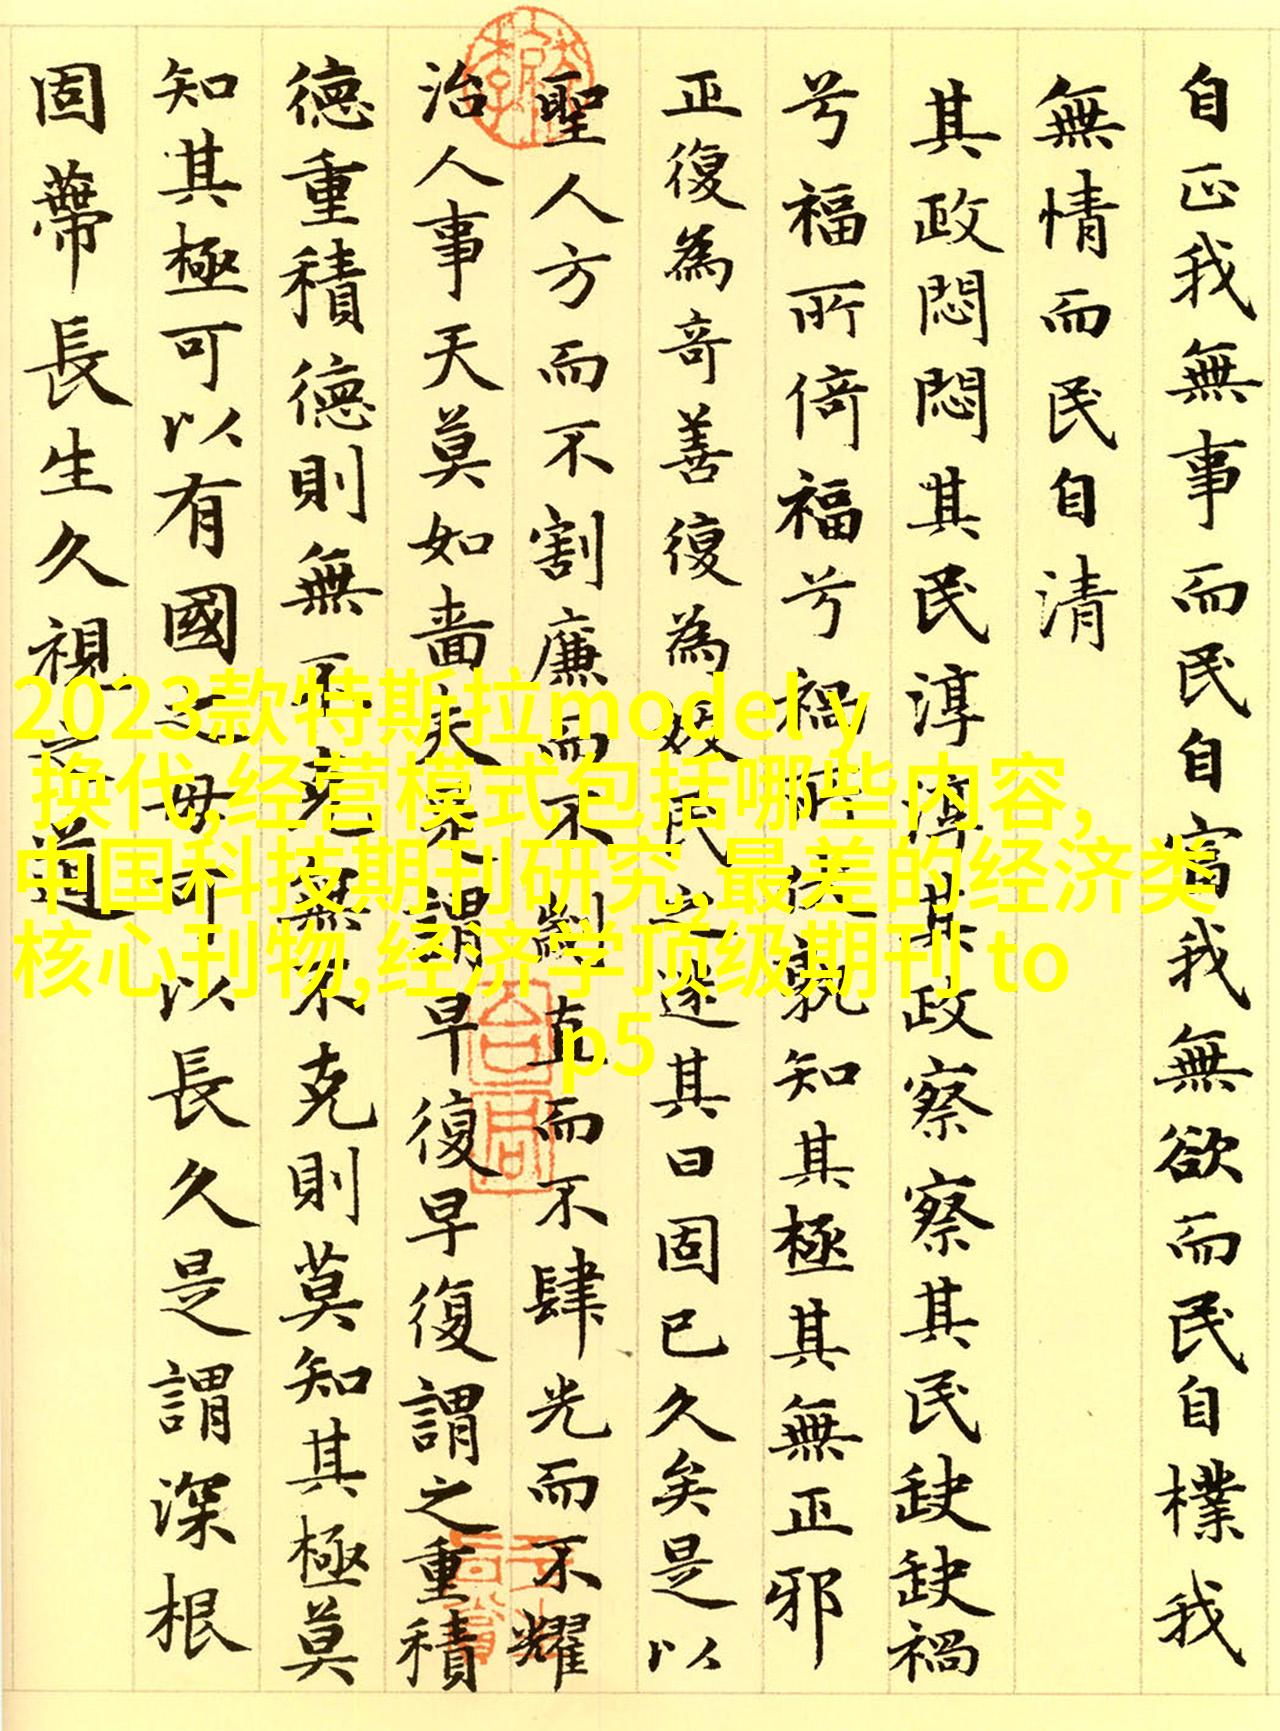 自正我無事而民自富我無欲而民自樸我
無情而民自清
其政悶悶其民淳淳其政察察其民缺缺禍
兮福所倚福兮禍所伏孰知其極其無正邪
正復為奇善復為妖民之迷其日固已久矣是以
聖人方而不割廉而不劌直而不肆光而不耀
治人事天莫如嗇夫是謂早復早復謂之重積
德重積德則無不克無不克則莫知其極莫
知其極可以有國之母可以長久是謂深根
固蔕長生久視之道
2023款特斯拉model y
换代,经营模式包括哪些内容,
中国科技期刊研究,最差的经济类
核心刊物,经济学顶级期刊 to
p5